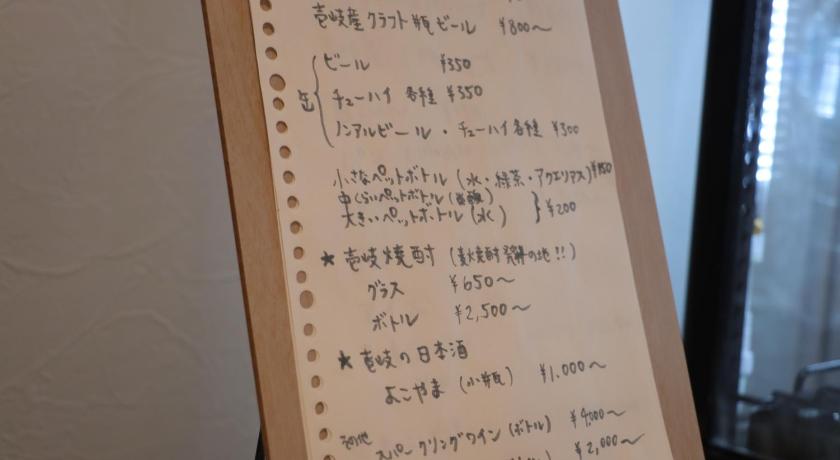 壱岐産クラフト瓶ビール ¥800〜
缶 ビール ¥350
チューハイ 各種 ¥350
ノンアルビール・チューハイ各種 ¥300
小さなペットボトル(水・緑茶・アクエリアス)¥150
中くらいペットボトル
大きいペットボトル(水) ¥200
★ 壱岐焼酎(麦焼酎発祥の地!!)
グラス ¥650〜
ボトル ¥2,500〜
★ 壱岐の日本酒
よこやま(小瓶) ¥1,000〜
その他 スパークリングワイン(ボトル) ¥4,000〜
¥2,000〜